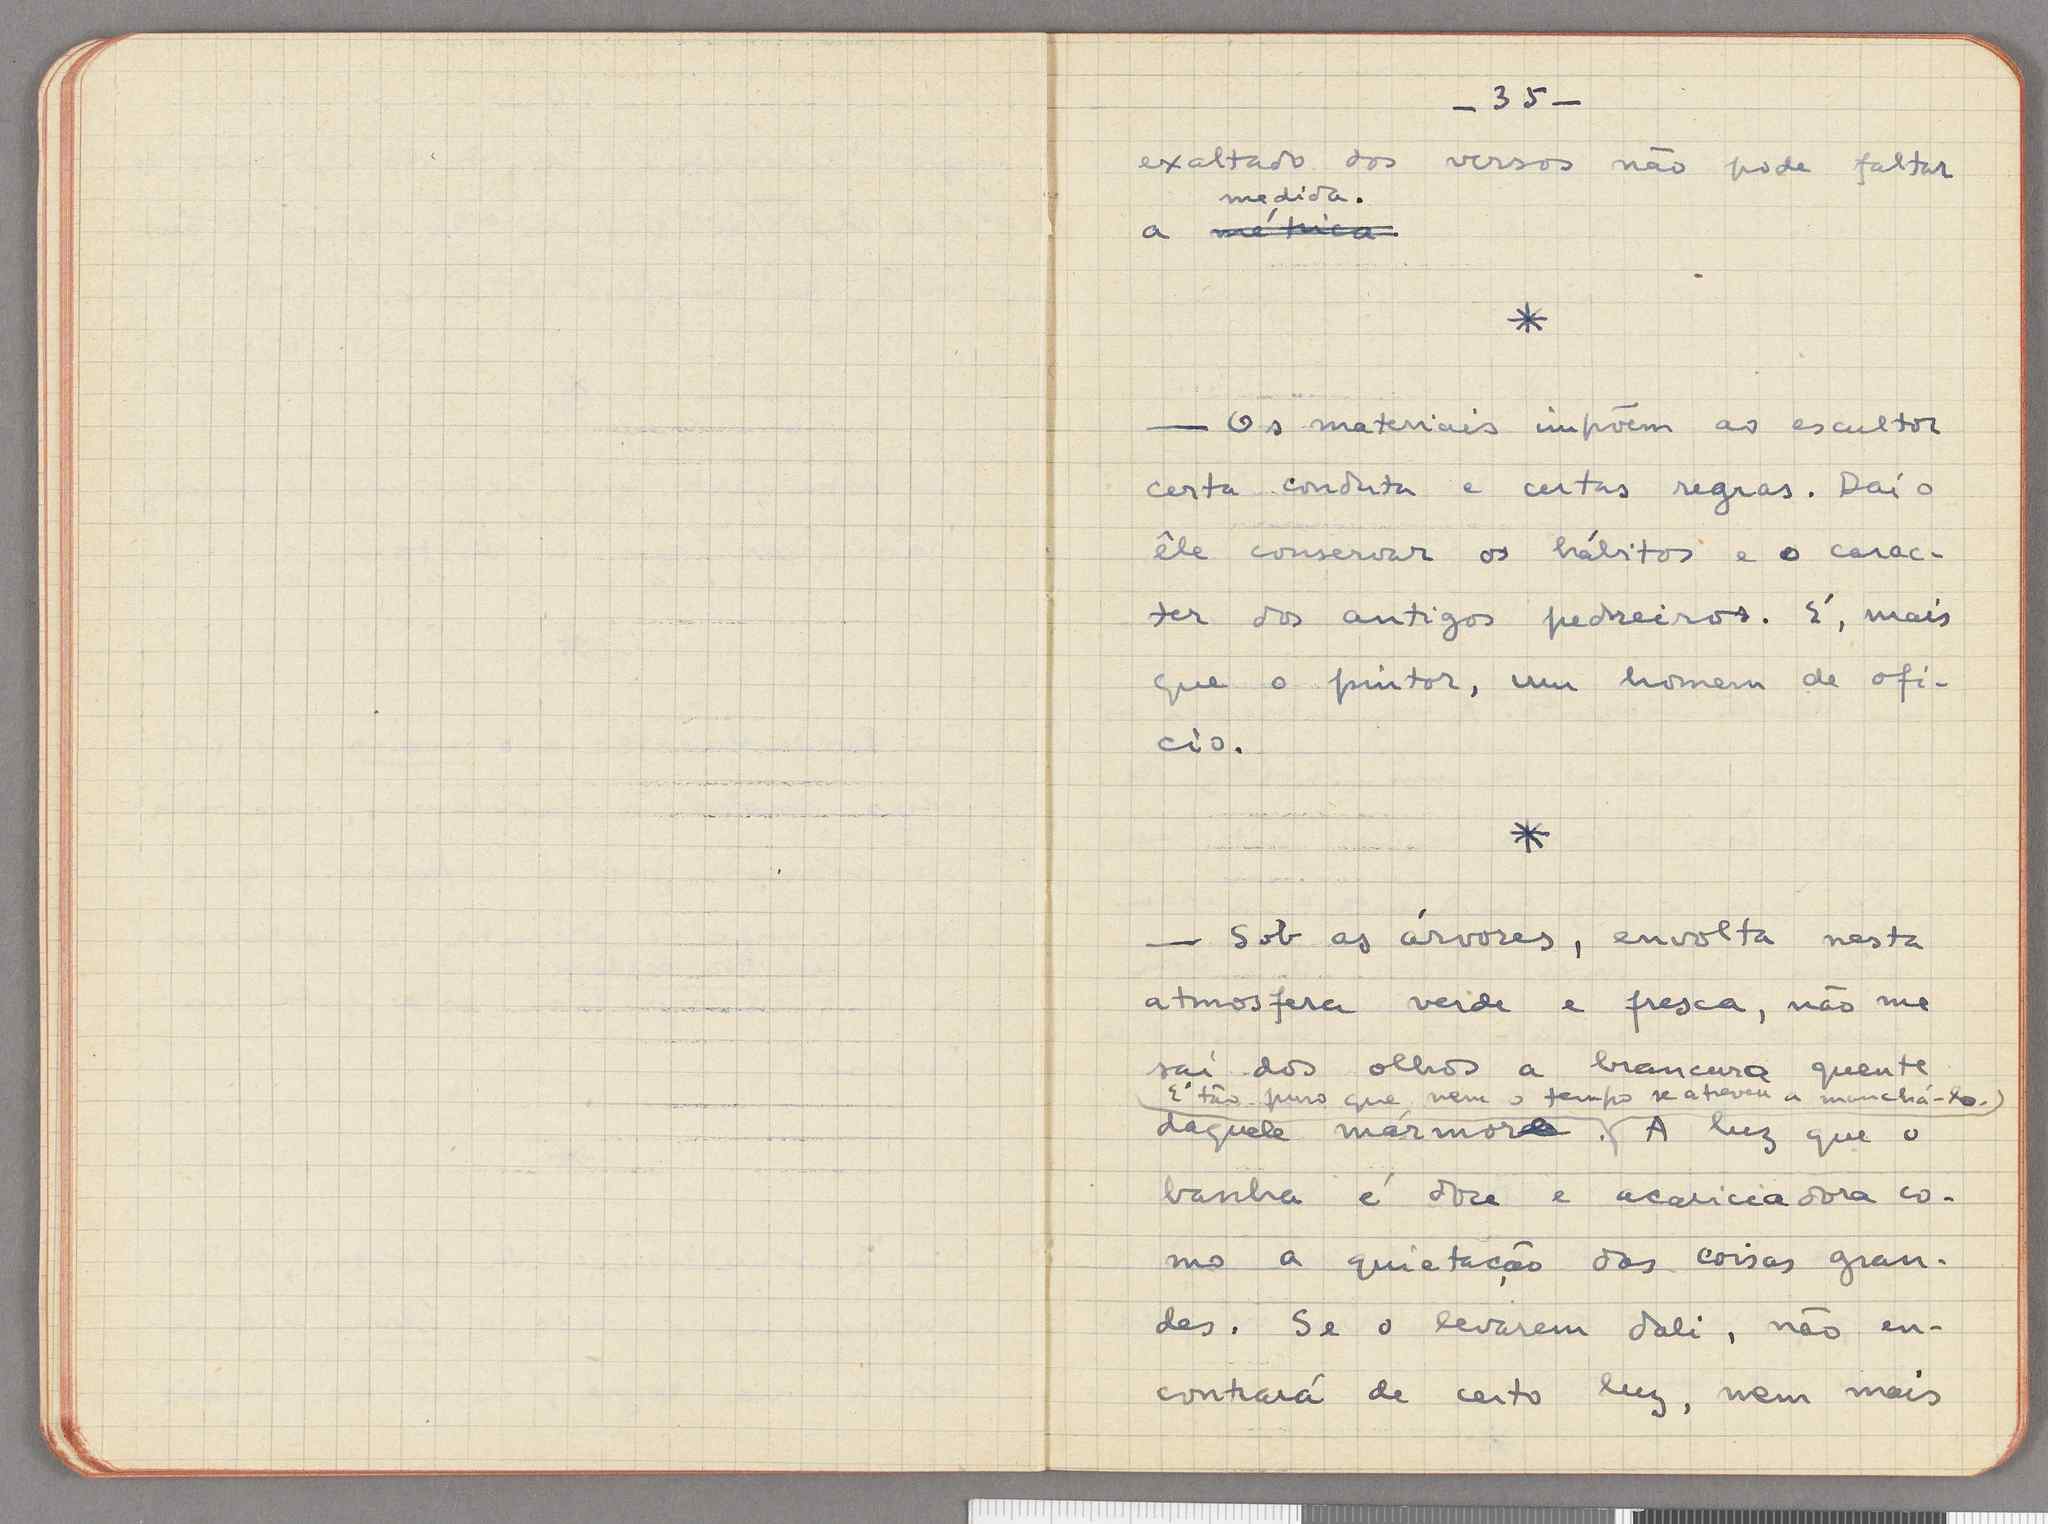 — 35 —
exaltado dos versos não pode faltar
medida.
a métrica.
*
— Os materiais impõem ao escultor
certa conduta e certas regras. Daí o
êle conservar os hábitos e o carac-
ter dos antigos pedreiros. É, mais
que o pintor, um homem de ofí-
cio.
*
— Sob as árvores, envolta nesta
atmosfera verde e fresca, não me
sai dos olhos a brancura quente
(É tão puro que nem o tempo se atreveu a manchá-lo.)
daquele mármore. A luz que o
banha é doce e acariciadora co-
mo a quietação das coisas gran-
des. Se o levarem dali, não en-
contrará de certo luz, nem mais